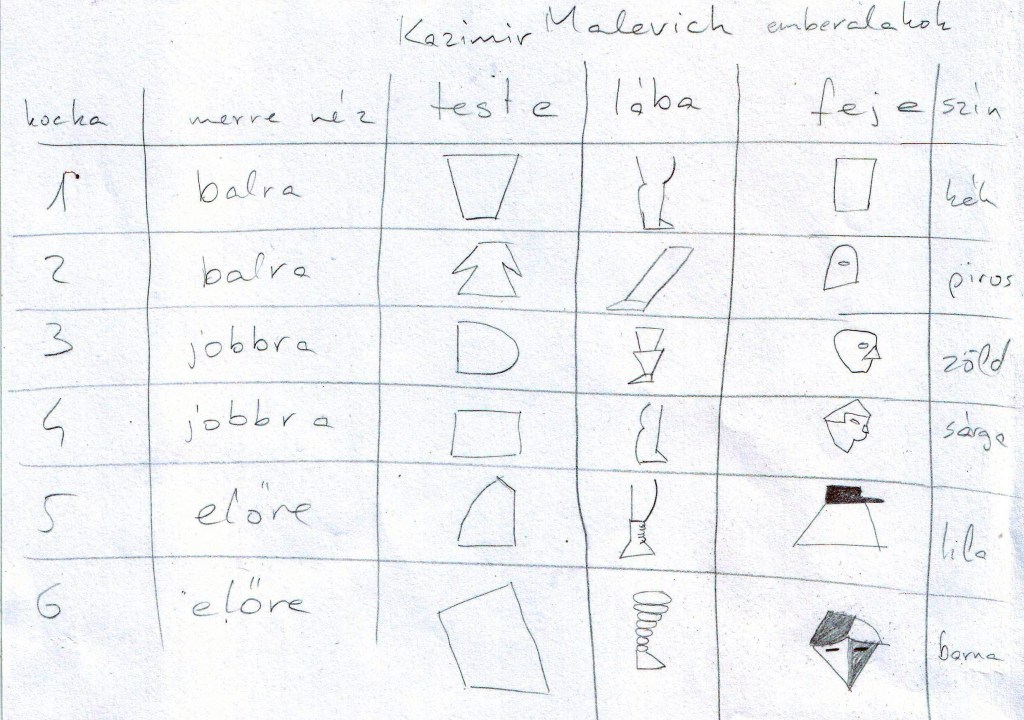 Kazimir Malevich emberalakok
kocka merre néz teste lába feje szín
1 balra kék
2 balra piros
3 jobbra zöld
4 jobbra sárga
5 előre lila
6 előre barna